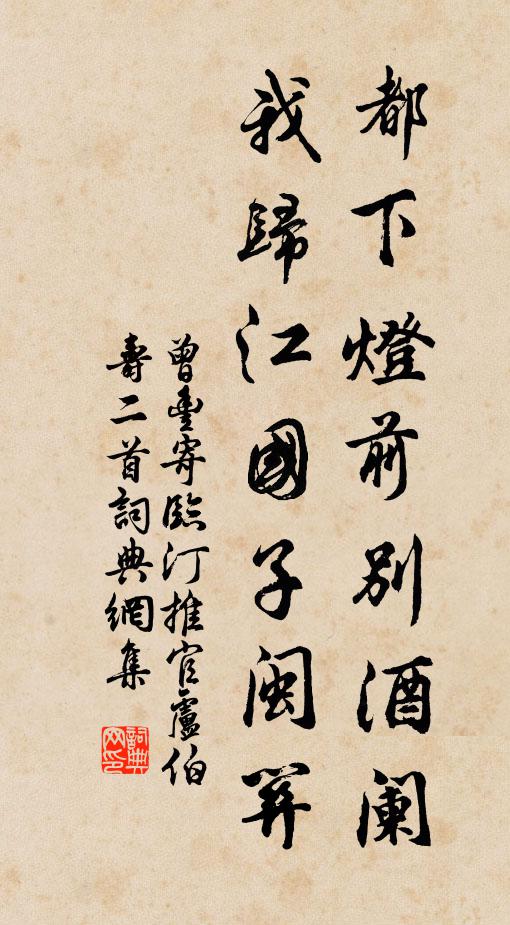 都下燈前別酒闌
我歸江國子閩關
曾豐寄臨汀推官盧伯
壽二首詞典網集
詞典网印